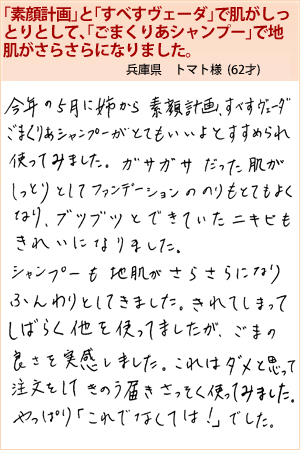 「素顔計画」と「すべすヴェーダ」で肌がしっ
とりとして、「ごまくりあシャンプー」で地
肌がさらさらになりました。
兵庫県　トマト様 (62才)
今年の5月に姉から素顔計画、すべすヴェーダ
ごまくりあシャンプーがとてもいいよとすすめられ
使ってみました。ガサガサだった肌が
しっとりとしてファンデーションののりもとてもよく
なり、ブツブツとできていたニキビも
きれいになりました。
シャンプーも地肌がさらさらになり
ふんわりとしてきました。きれてしまって
しばらく他を使ってましたが、ごまの
良さを実感しました。これはダメと思って
注文をしてきのう届きさっそく使ってみました。
やっぱり「これでなくては！」でした。